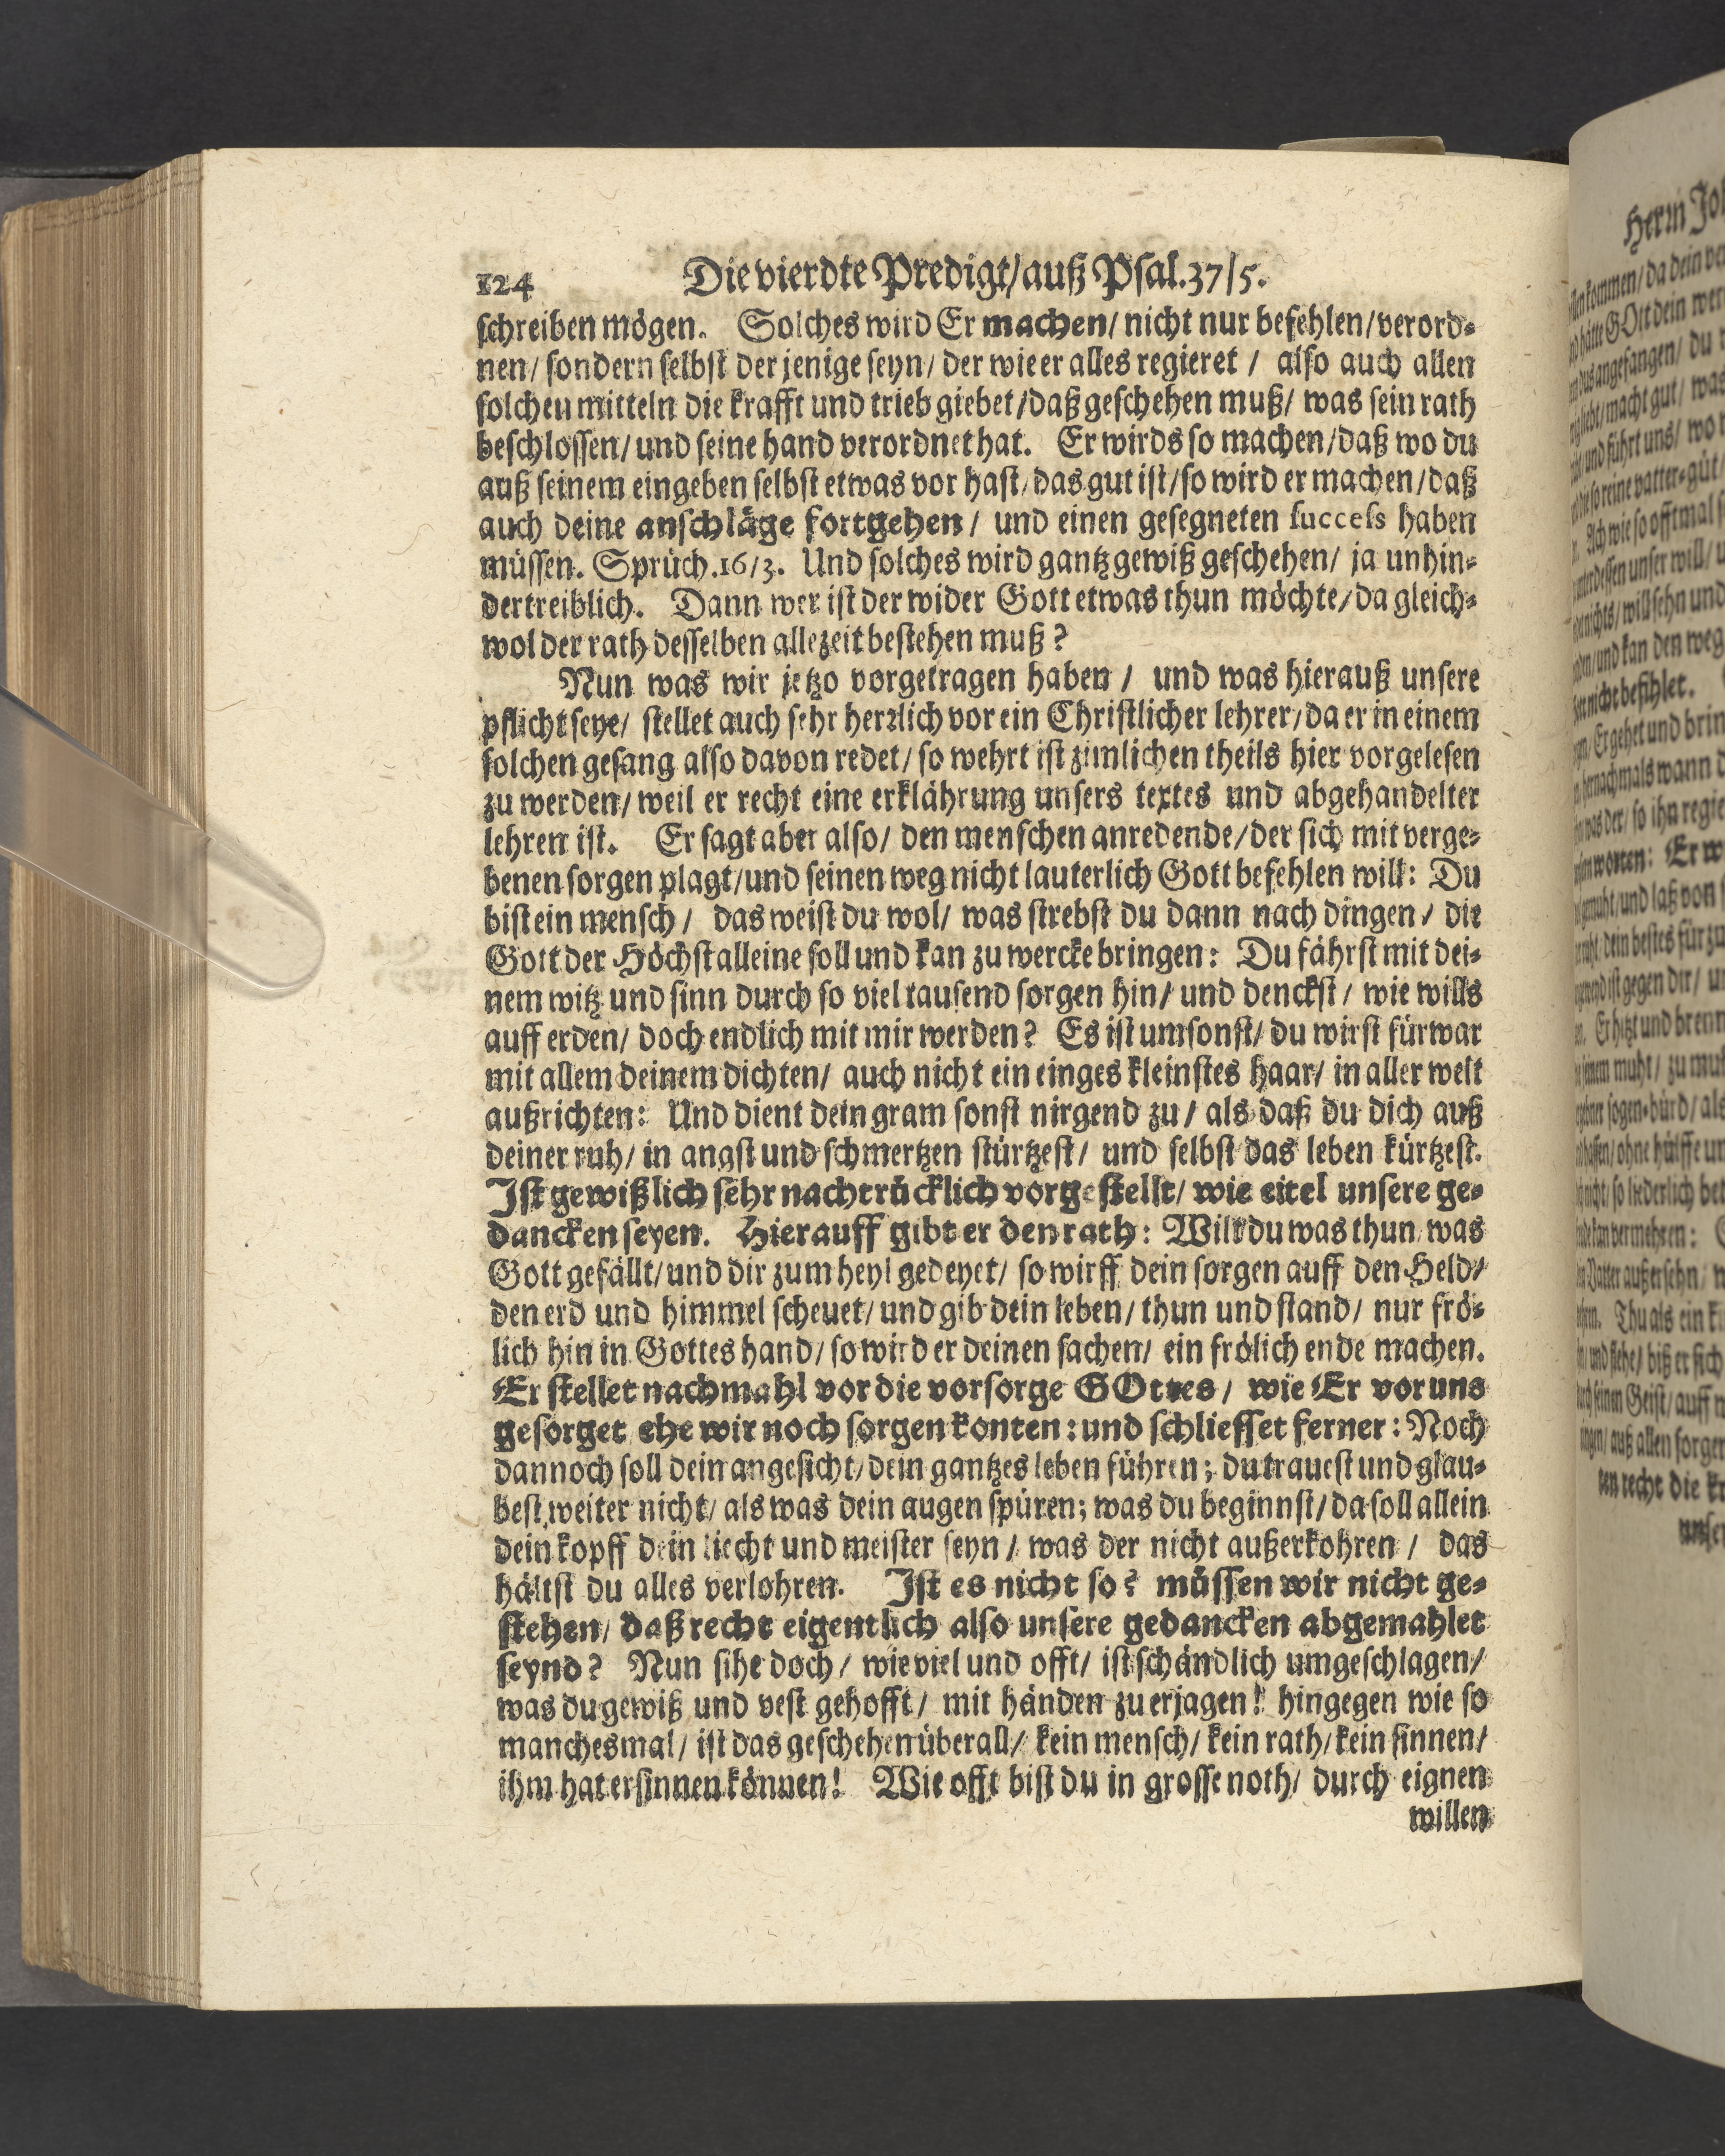 124 Die vierdte Predigt/ auß Psal. 37/5.
schreiben mögen. Solches wird Er machen/ nicht nur befehlen/ verord-
nen/ sondern selbst der jenige seyn/ der wie er alles regieret / also auch allen
solchen mitteln die krafft und trieb giebet/ daß geschehen muß/ was sein rath
beschlossen/ und seine hand verordnet hat. Er wirds so machen/ daß wo du
auß seinem eingeben selbst etwas vor hast/ das gut ist/ so wird er machen/ daß
auch deine anschläge fortgehen/ und einen gesegneten success haben
müssen. Sprüch. 16/3. Und solches wird gantz gewiß geschehen/ ja unhin-
dertreiblich. Dann wer ist der wider Gott etwas thun möchte/ da gleich-
wol der rath desselben allezeit bestehen muß?
Nun was wir jetzo vorgetragen haben / und was hierauß unsere
pflicht seye/ stellet auch sehr herzlich vor ein Christlicher lehrer/ da er in einem
solchen gesang also davon redet/ so wehrt ist zimlichen theils hier vorgelesen
zu werden/ weil er recht eine erklährung unsers textes und abgehandelter
lehren ist. Er sagt aber also/ den menschen anredende/ der sich mit verge-
benen sorgen plagt/ und seinen weg nicht lauterlich Gott befehlen will: Du
bist ein mensch / das weist du wol/ was strebst du dann nach dingen / die
Gott der Höchst alleine soll und kan zu wercke bringen: Du fährst mit dei-
nem witz und sinn durch so viel tausend sorgen hin/ und denckst / wie wills
auff erden/ doch endlich mit mir werden? Es ist umsonst/ du wirst fürwar
mit allem deinem dichten/ auch nicht ein einges kleinstes haar/ in aller welt
außrichten: Und dient dein gram sonst nirgend zu / als daß du dich auß
deiner ruh/ in angst und schmertzen stürtzest/ und selbst das leben kürtzest.
Ist gewißlich sehr nachtrücklich vorgestellt/ wie eitel unsere ge-
dancken seyen. Hierauff gibt er den rath: Wilt du was thun was
Gott gefällt/ und dir zum heyl gedeyet/ so wirff dein sorgen auff den Held/
den erd und himmel scheuet/ und gib dein leben/ thun und stand/ nur frö-
lich hin in Gottes hand/ so wird er deinen sachen/ ein frölich ende machen.
Er stellet nachmahl vor die vorsorge GOttes/ wie Er vor uns
gesorget ehe wir noch sorgen konten: und schliesset ferner: Noch
dannoch soll dein angesicht/ dein gantzes leben führen; du trauest und glau-
best weiter nicht/ als was dein augen spüren; was du beginnst/ da soll allein
dein kopff dein liecht und meister seyn / was der nicht außerkohren / das
hältst du alles verlohren. Ist es nicht so? müssen wir nicht ge-
stehen/ daß recht eigentlich also unsere gedancken abgemahlet
seynd? Nun sihe doch/ wie viel und offt/ ist schändlich umgeschlagen/
was du gewiß und vest gehofft/ mit händen zu erjagen! hingegen wie so
manchesmal/ ist das geschehen überall/ kein mensch/ kein rath/ kein sinnen/
ihm hat ersinnen können! Wie offt bist du in grosse noth/ durch eignen
willen